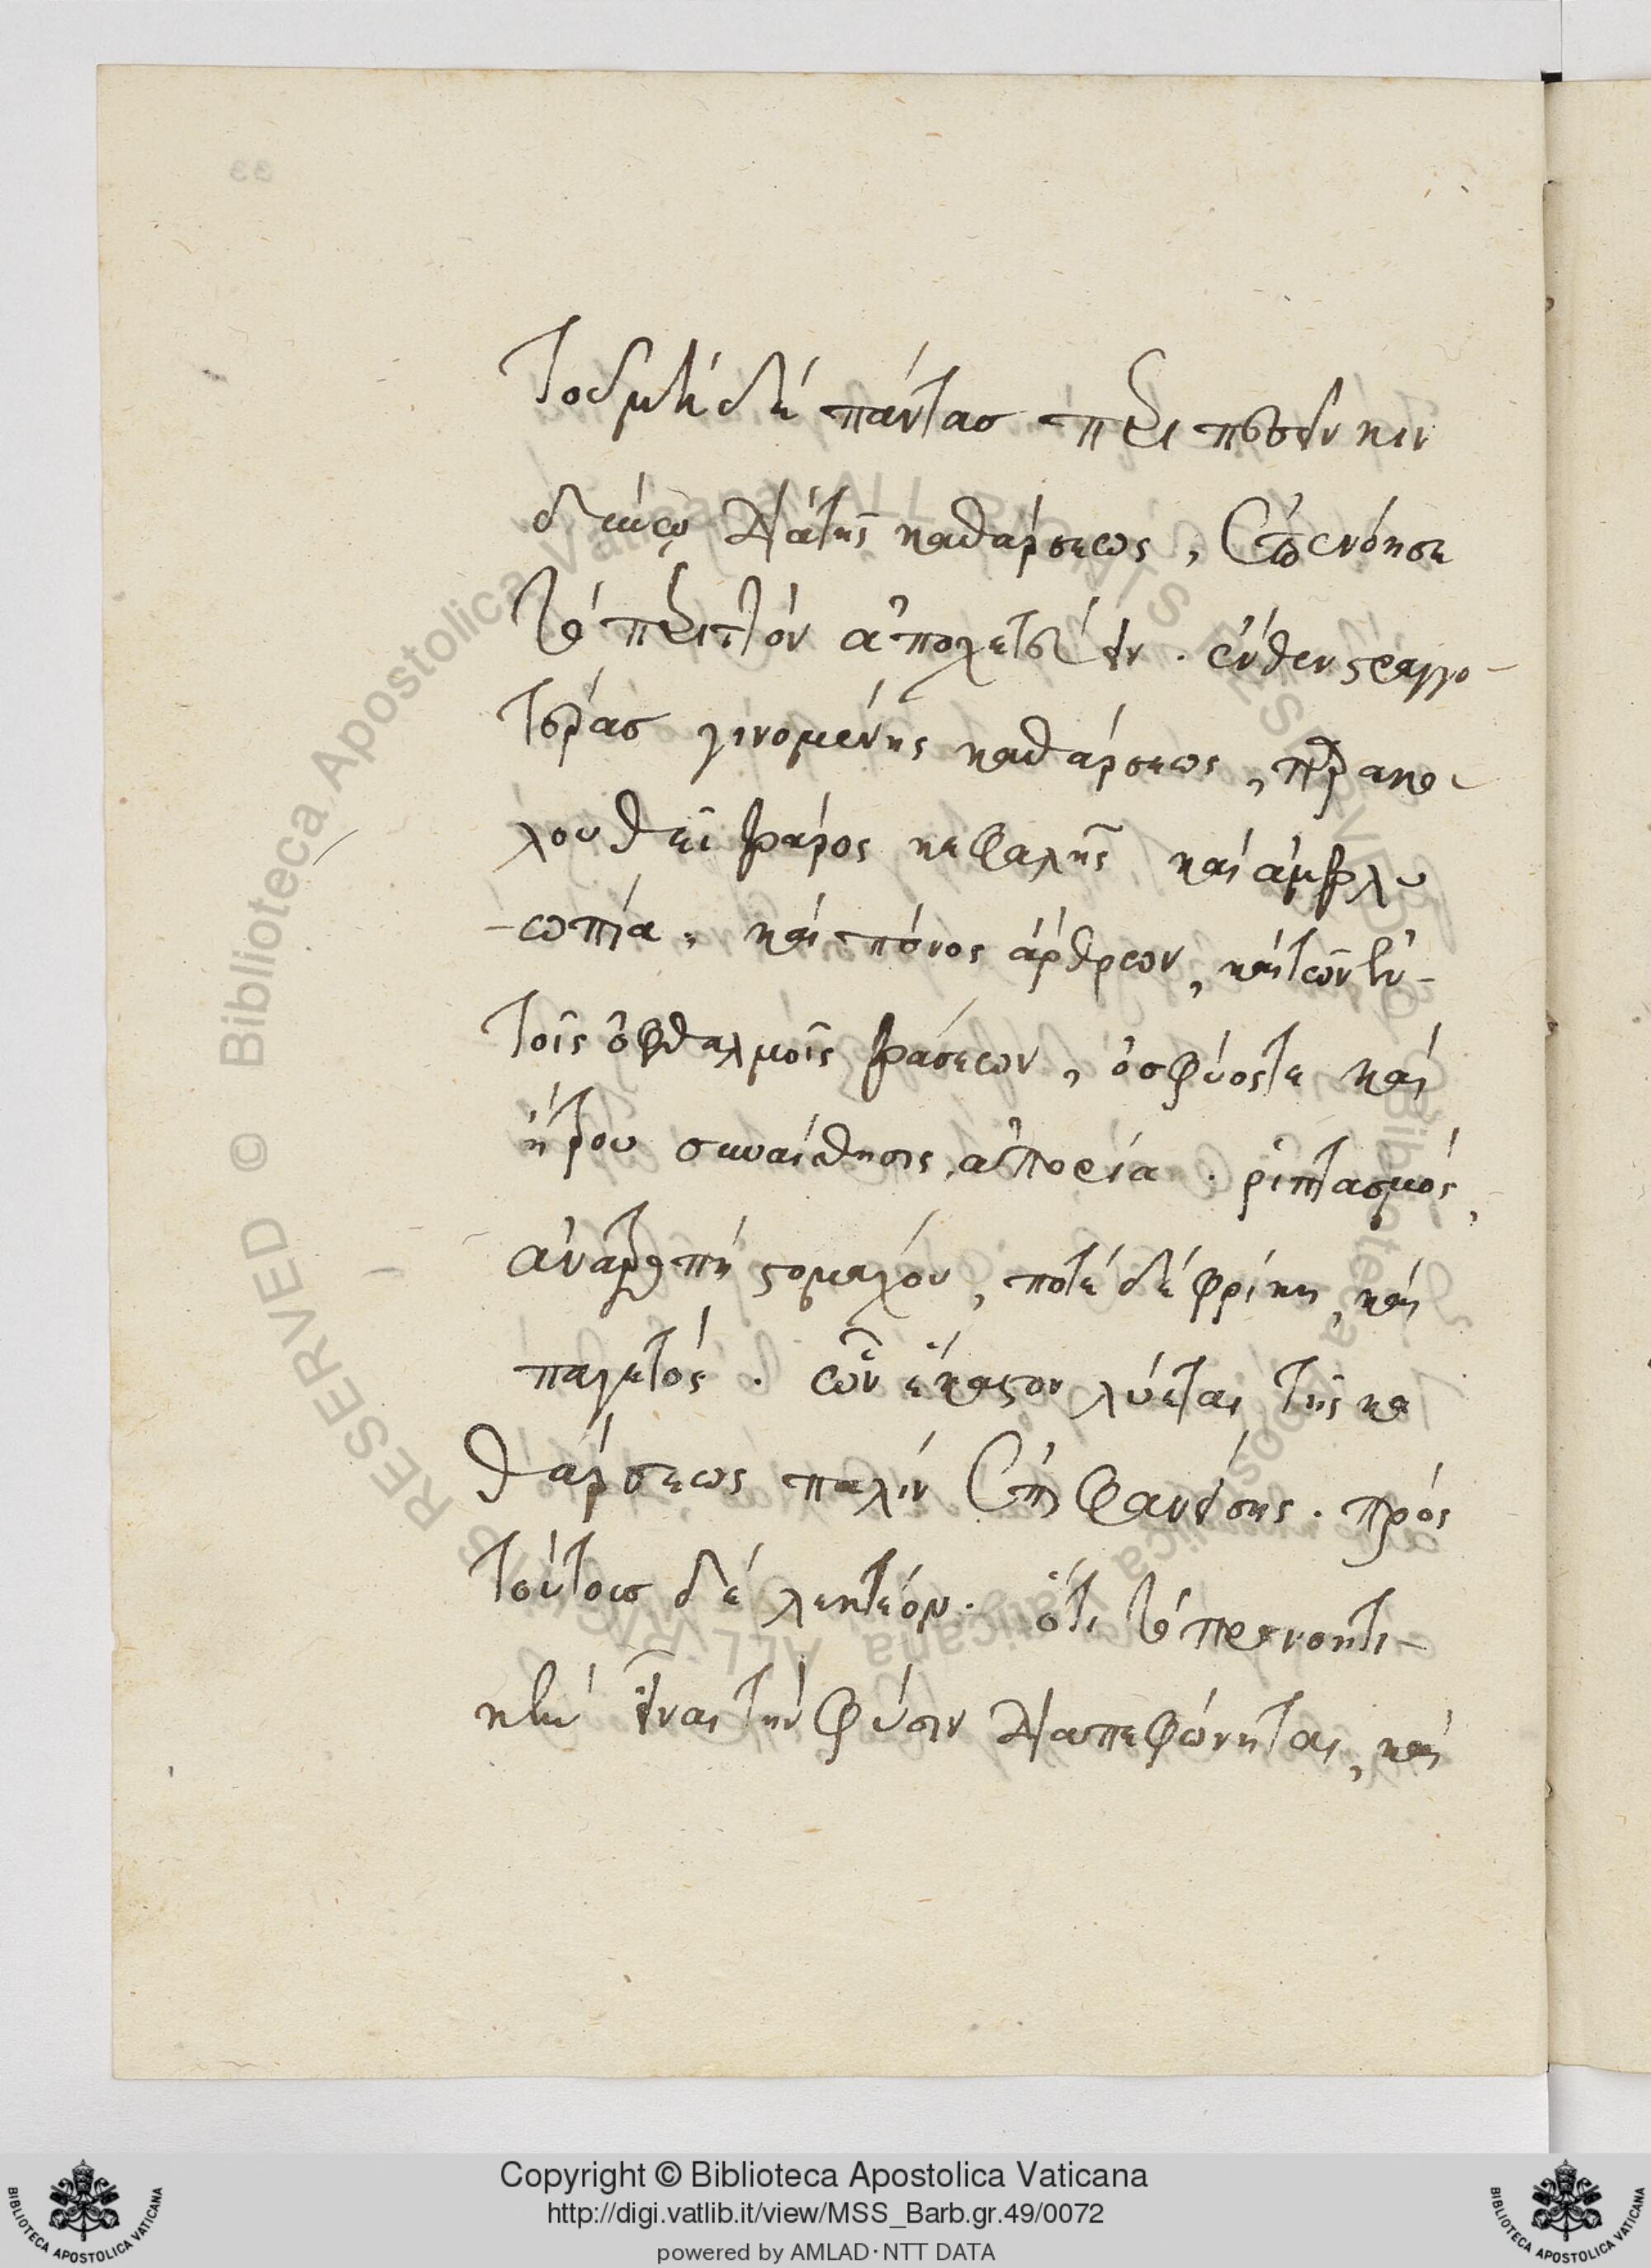 τοὺς μὴ δὲ πάντας περιττεύειν
διὰ τῆς καθάρσεως, ἐπενόησε
τὸ περιττὸν ἀποχετεύειν. ἔνθεν στραγγο-
τέρας γινομένης καθάρσεως, παρακο-
λουθεῖ βάρος κεφαλῆς καὶ ἀμβλυ
-ωπία. καὶ πόνος ἄρθρων, καὶ τῶν ἐν
τοῖς ὀφθαλμοῖς βάσεων, ὀσφύος τε καὶ
ἤτρου συναίσθησις, ἀπορία. ῥιπτασμός,
ἀνατροπὴ στομάχου, ποτὲ δὲ φρίκη, καὶ
παγετός. ὧν ἕκαστον λύεται τῆς κα
θάρσεως πάλιν ἐπιφανείσης. πρὸς
τούτοις δὲ λεκτέον. ὅτι τὸ προνοητι-
κὴν εἶναι τὴν φύσιν διαπεφώνηται, καὶ
Copyright © Biblioteca Apostolica Vaticana
http://digi.vatlib.it/view/MSS_Barb.gr.49/0072
powered by AMLAD·NTT DATA